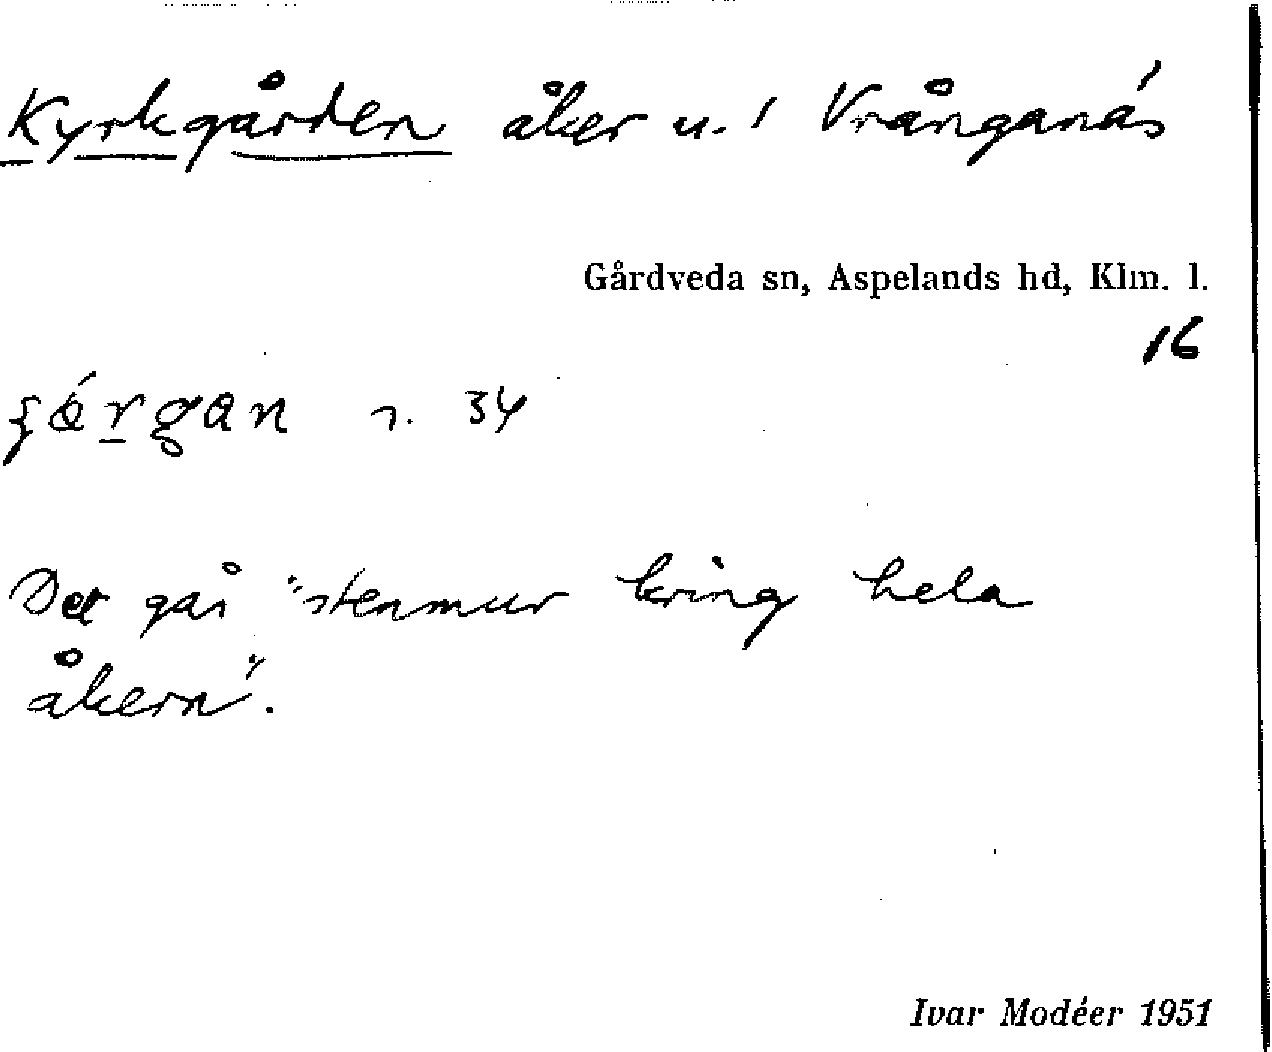 Kyrkgården åker u. 1 Vrånganäs
Gårdveda sn, Aspelands hd, Klm. l.
16
34
Det går "stenmur kring hela
åkern".
Ivar Modéer 1951